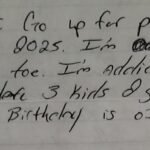 I Go up for p
2025. I'm
toe. I'm Addic
3 Kids &
Birthday is 0